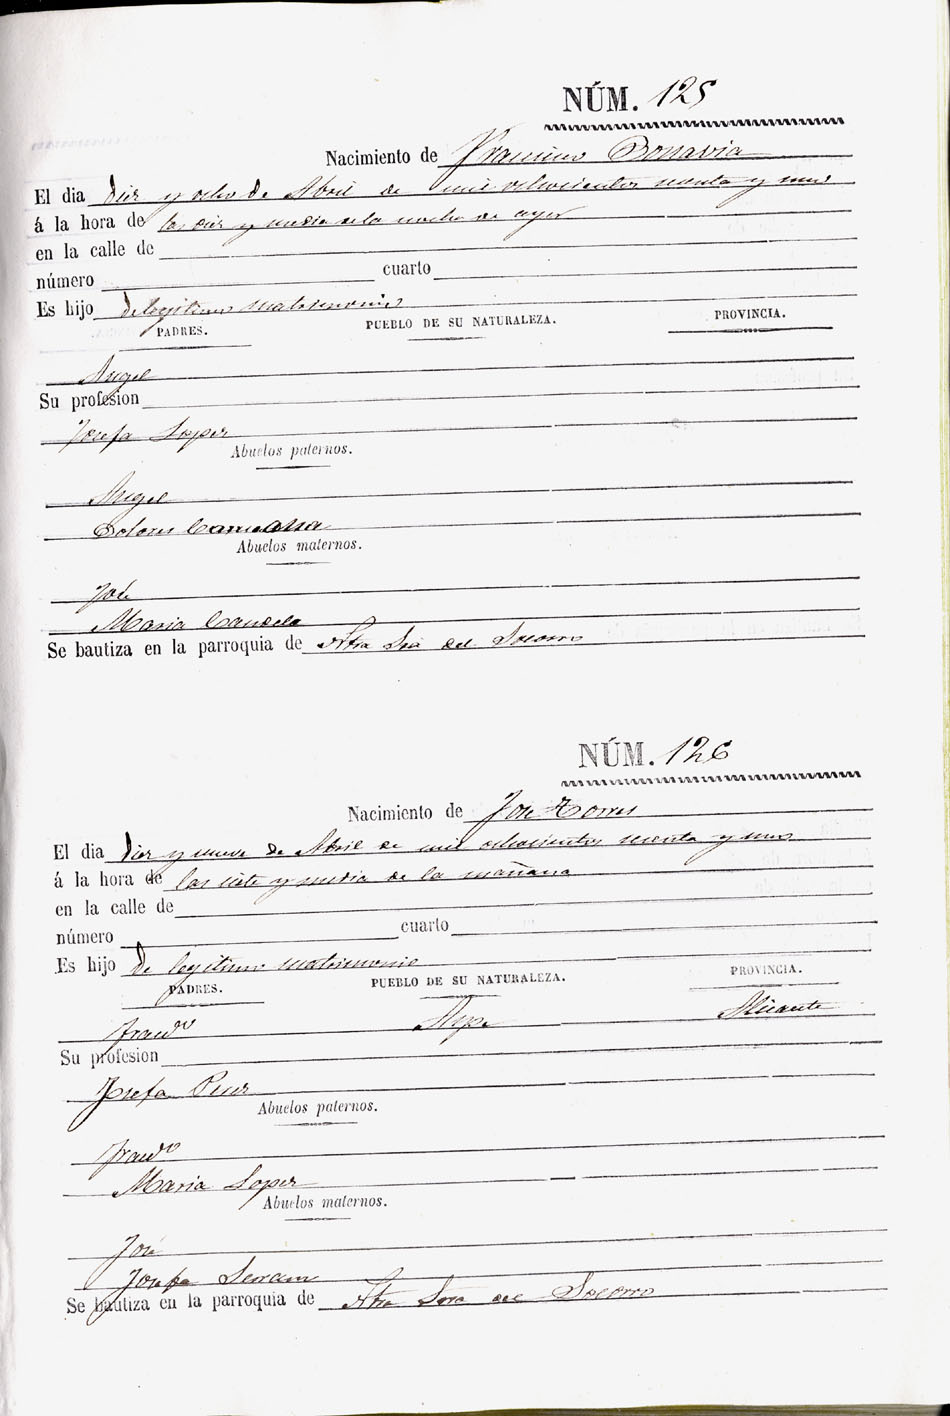 NÚM. 125
Nacimiento de Francisco Bonavia
El dia diez y ocho de Abril de mil ochocientos sesenta y uno
á la hora de las diez y media de la noche de ayer
en la calle de
número cuarto
Es hijo de legitimo matrimonio
PADRES. PUEBLO DE SU NATURALEZA. PROVINCIA.
Angel
Su profesion
Josefa Lopez
Abuelos paternos.
Angel
Dolores
Abuelos maternos.
José
Maria Candela
Se bautiza en la parroquia de Ntra Sra del Socorro
NÚM. 126
Nacimiento de José Torres
El dia diez y nueve de Abril de mil ochocientos sesenta y uno
á la hora de las siete y media de la mañana
en la calle de
número cuarto
Es hijo de legitimo matrimonio
PADRES. PUEBLO DE SU NATURALEZA. PROVINCIA.
Franco Aspe Alicante
Su profesion
Josefa
Abuelos paternos.
Franco
Maria Lopez
Abuelos maternos.
José
Josefa
Se bautiza en la parroquia de Ntra Sra del Socorro